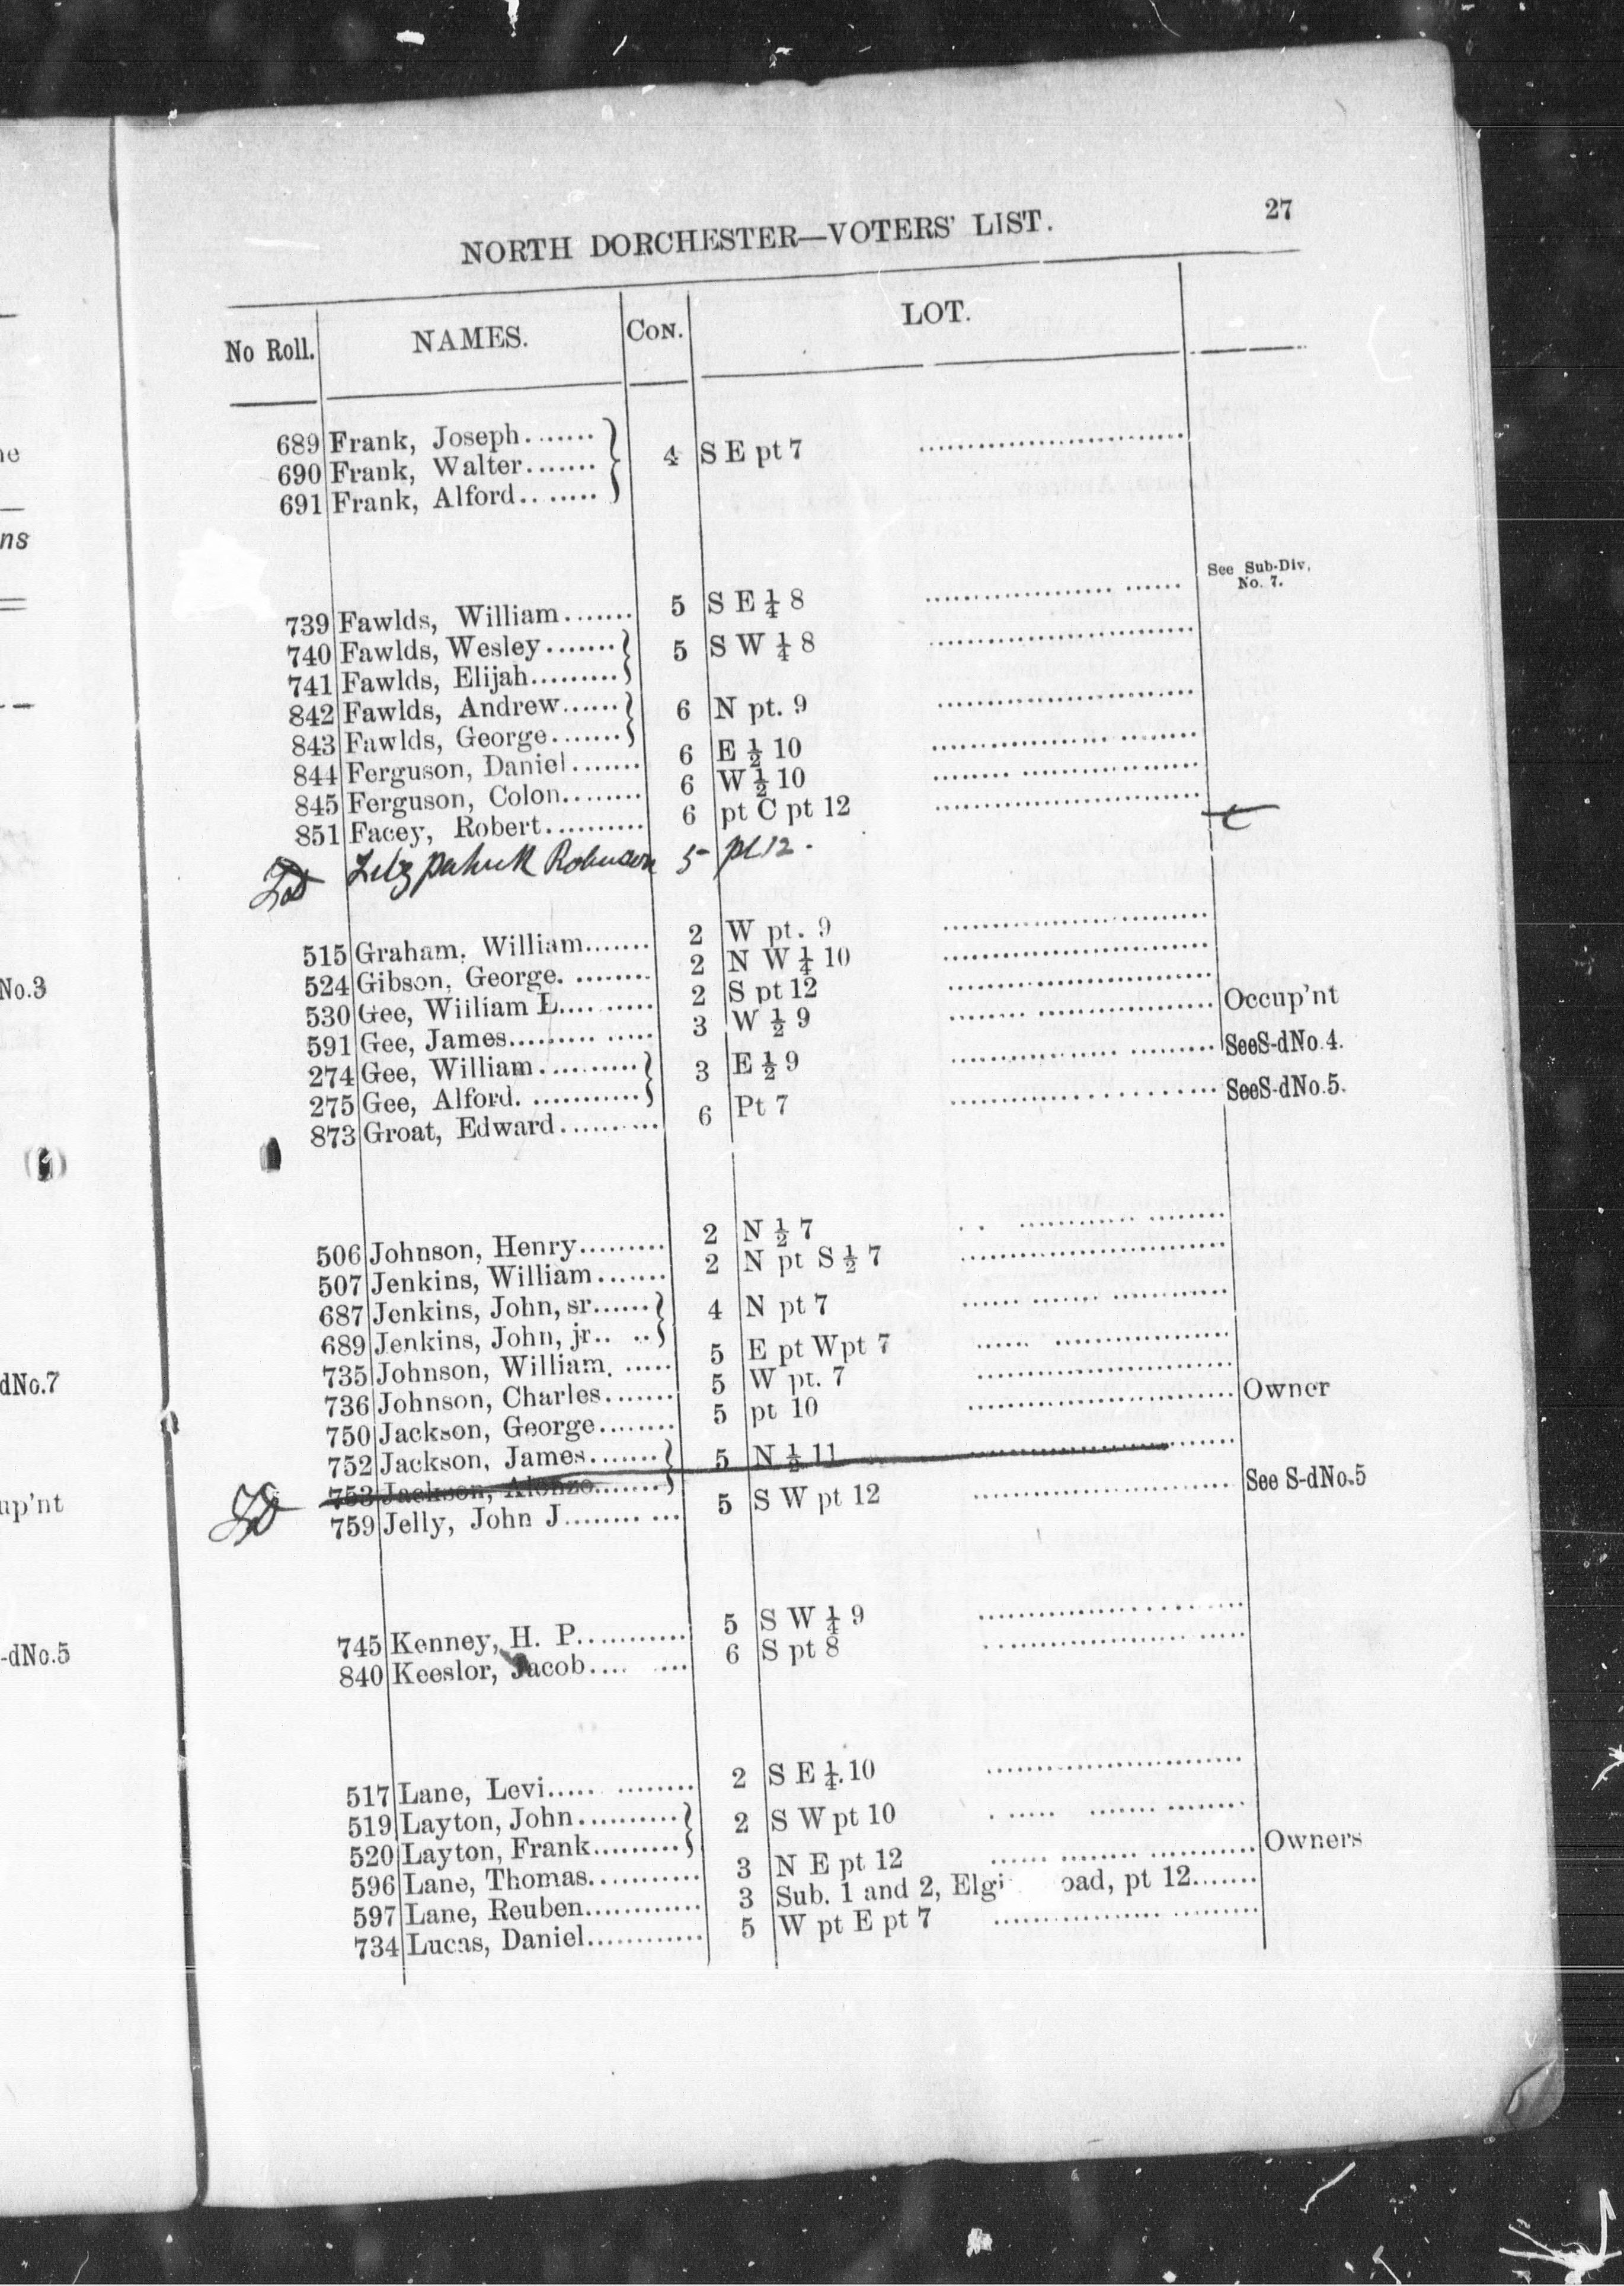 27
NORTH DORCHESTER—VOTERS' LIST.
No Roll. NAMES. CON. LOT.
689 Frank, Joseph
690 Frank, Walter 4 S E pt 7
691 Frank, Alford
See Sub-Div, No. 7.
739 Fawlds, William 5 S E ¼ 8
740 Fawlds, Wesley 5 S W ¼ 8
741 Fawlds, Elijah
842 Fawlds, Andrew 6 N pt. 9
843 Fawlds, George
844 Ferguson, Daniel 6 E ½ 10
845 Ferguson, Colon 6 W ½ 10
851 Facey, Robert 6 pt C pt 12
Fitzpatrick Robinson 5 pt 12.
515 Graham, William 2 W pt. 9
524 Gibson, George. 2 N W ¼ 10
530 Gee, William L 2 S pt 12
591 Gee, James 3 W ½ 9 Occup'nt
274 Gee, William 3 E ½ 9 SeeS-dNo.4.
275 Gee, Alford.
873 Groat, Edward 6 Pt 7 SeeS-dNo.5.
506 Johnson, Henry 2 N ½ 7
507 Jenkins, William 2 N pt S ½ 7
687 Jenkins, John, sr 4 N pt 7
689 Jenkins, John, jr
735 Johnson, William. 5 E pt Wpt 7
736 Johnson, Charles 5 W pt. 7
750 Jackson, George 5 pt 10 Owner
752 Jackson, James 5 N ½ 11
753 Jackson, Alonzo
759 Jelly, John J 5 S W pt 12 See S-dNo.5
745 Kenney, H. P. 5 S W ¼ 9
840 Keeslor, Jacob 6 S pt 8
517 Lane, Levi 2 S E ¼ 10
519 Layton, John 2 S W pt 10
520 Layton, Frank
596 Lane, Thomas 3 N E pt 12 Owners
597 Lane, Reuben 3 Sub. 1 and 2, Elgi oad, pt 12
734 Lucas, Daniel 5 W pt E pt 7
ns
No.3
dNo.7
up'nt
-dNo.5